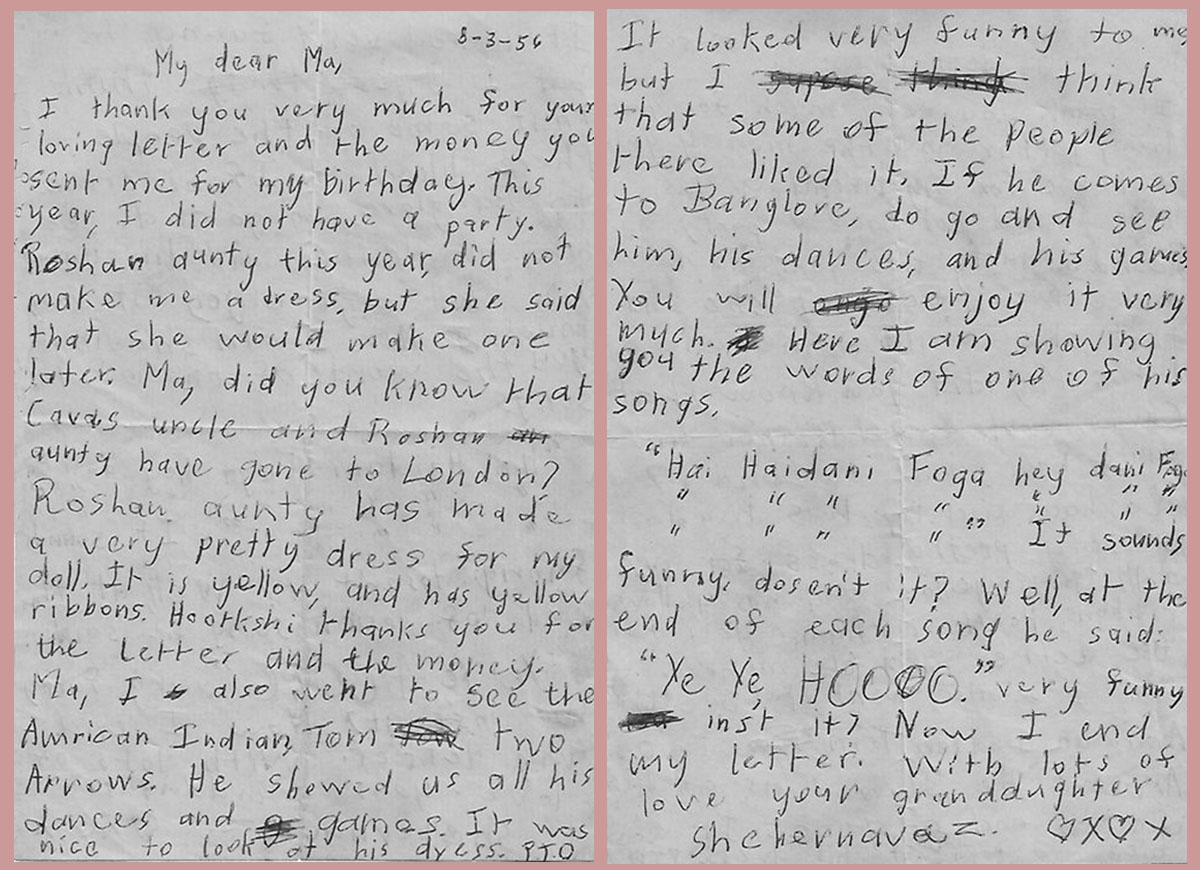 8-3-56
My dear Ma,
I thank you very much for your
loving letter and the money you
sent me for my birthday. This
year, I did not have a party.
Roshan aunty this year, did not
make me a dress, but she said
that she would make one
later. Ma, did you know that
Cavas uncle and Roshan
aunty have gone to London?
Roshan aunty has made
a very pretty dress for my
doll. It is yellow, and has yellow
ribbons. Hootkshi thanks you for
the letter and the money.
Ma, I also went to see the
Amrican Indian, Tom two
Arrows. He showed us all his
dances and games. It was
nice to look at his dress. P.T.O
It looked very funny to me
but I supose think think
that some of the people
there liked it. If he comes
to Banglore, do go and see
him, his dances, and his games
You will engo enjoy it very
much. Here I am showing
you the words of one of his
songs.
"Hai Haidani Foga hey dani Foga
" " " " " " "
" " " " " " " " It sounds
funny, dosen't it? Well, at the
end of each song he said:
"Ye Ye, HOOOO." very funny
inst it? Now I end
my letter. With lots of
love your granddaughter
Shehernavaz. ♡X♡X